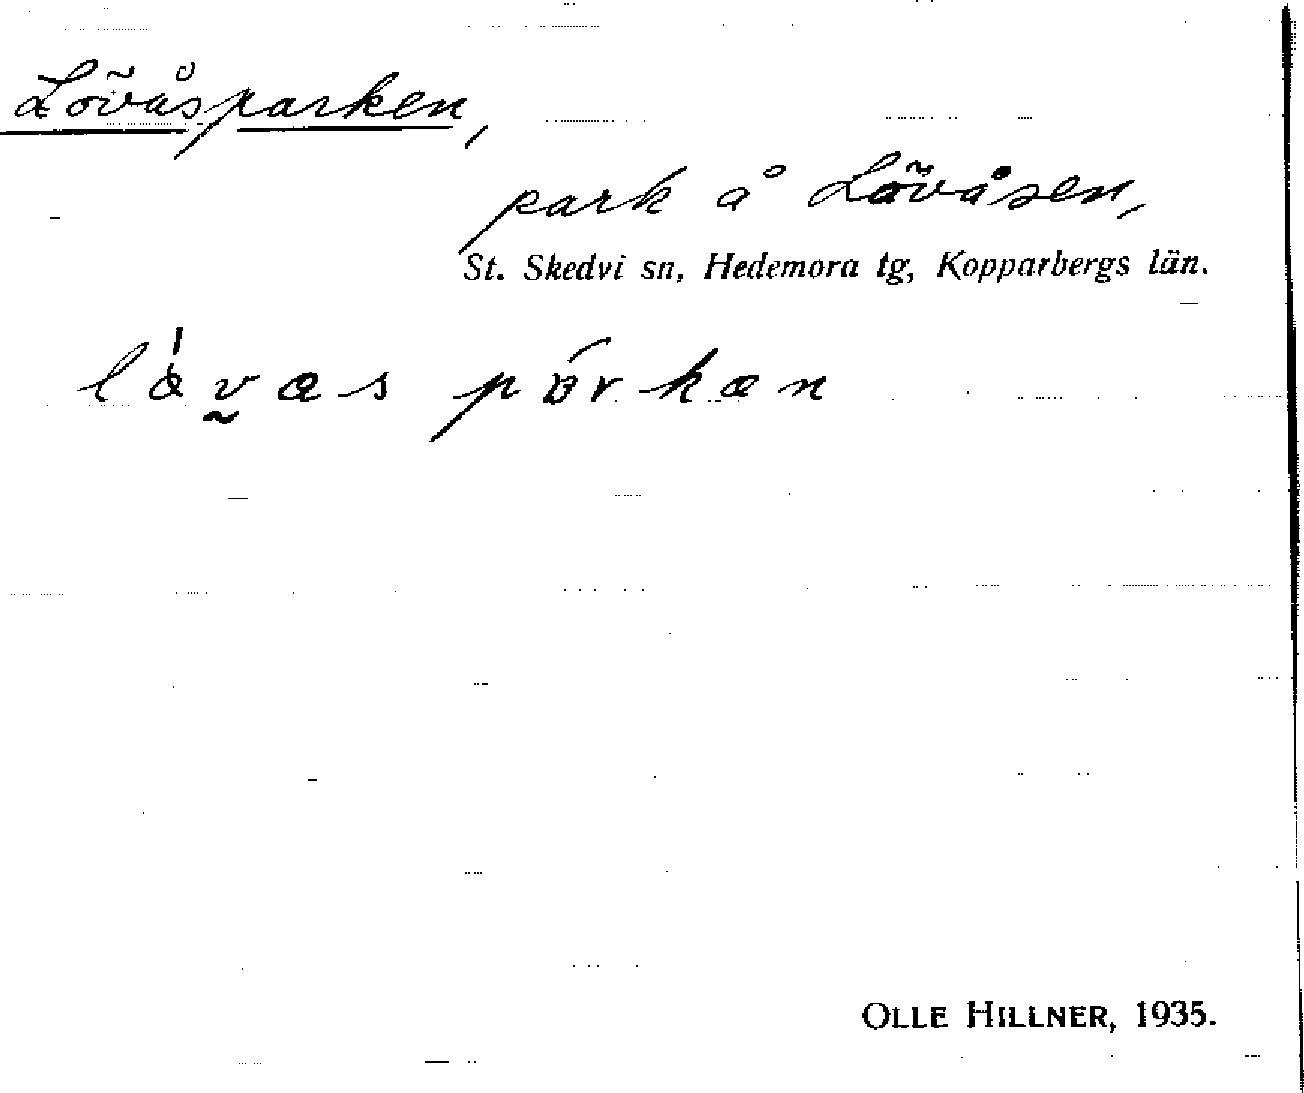 Lövåsparken,
park å Lövåsen,
St. Skedvi sn, Hedemora tg, Kopparbergs län.
OLLE HILLNER, 1935.